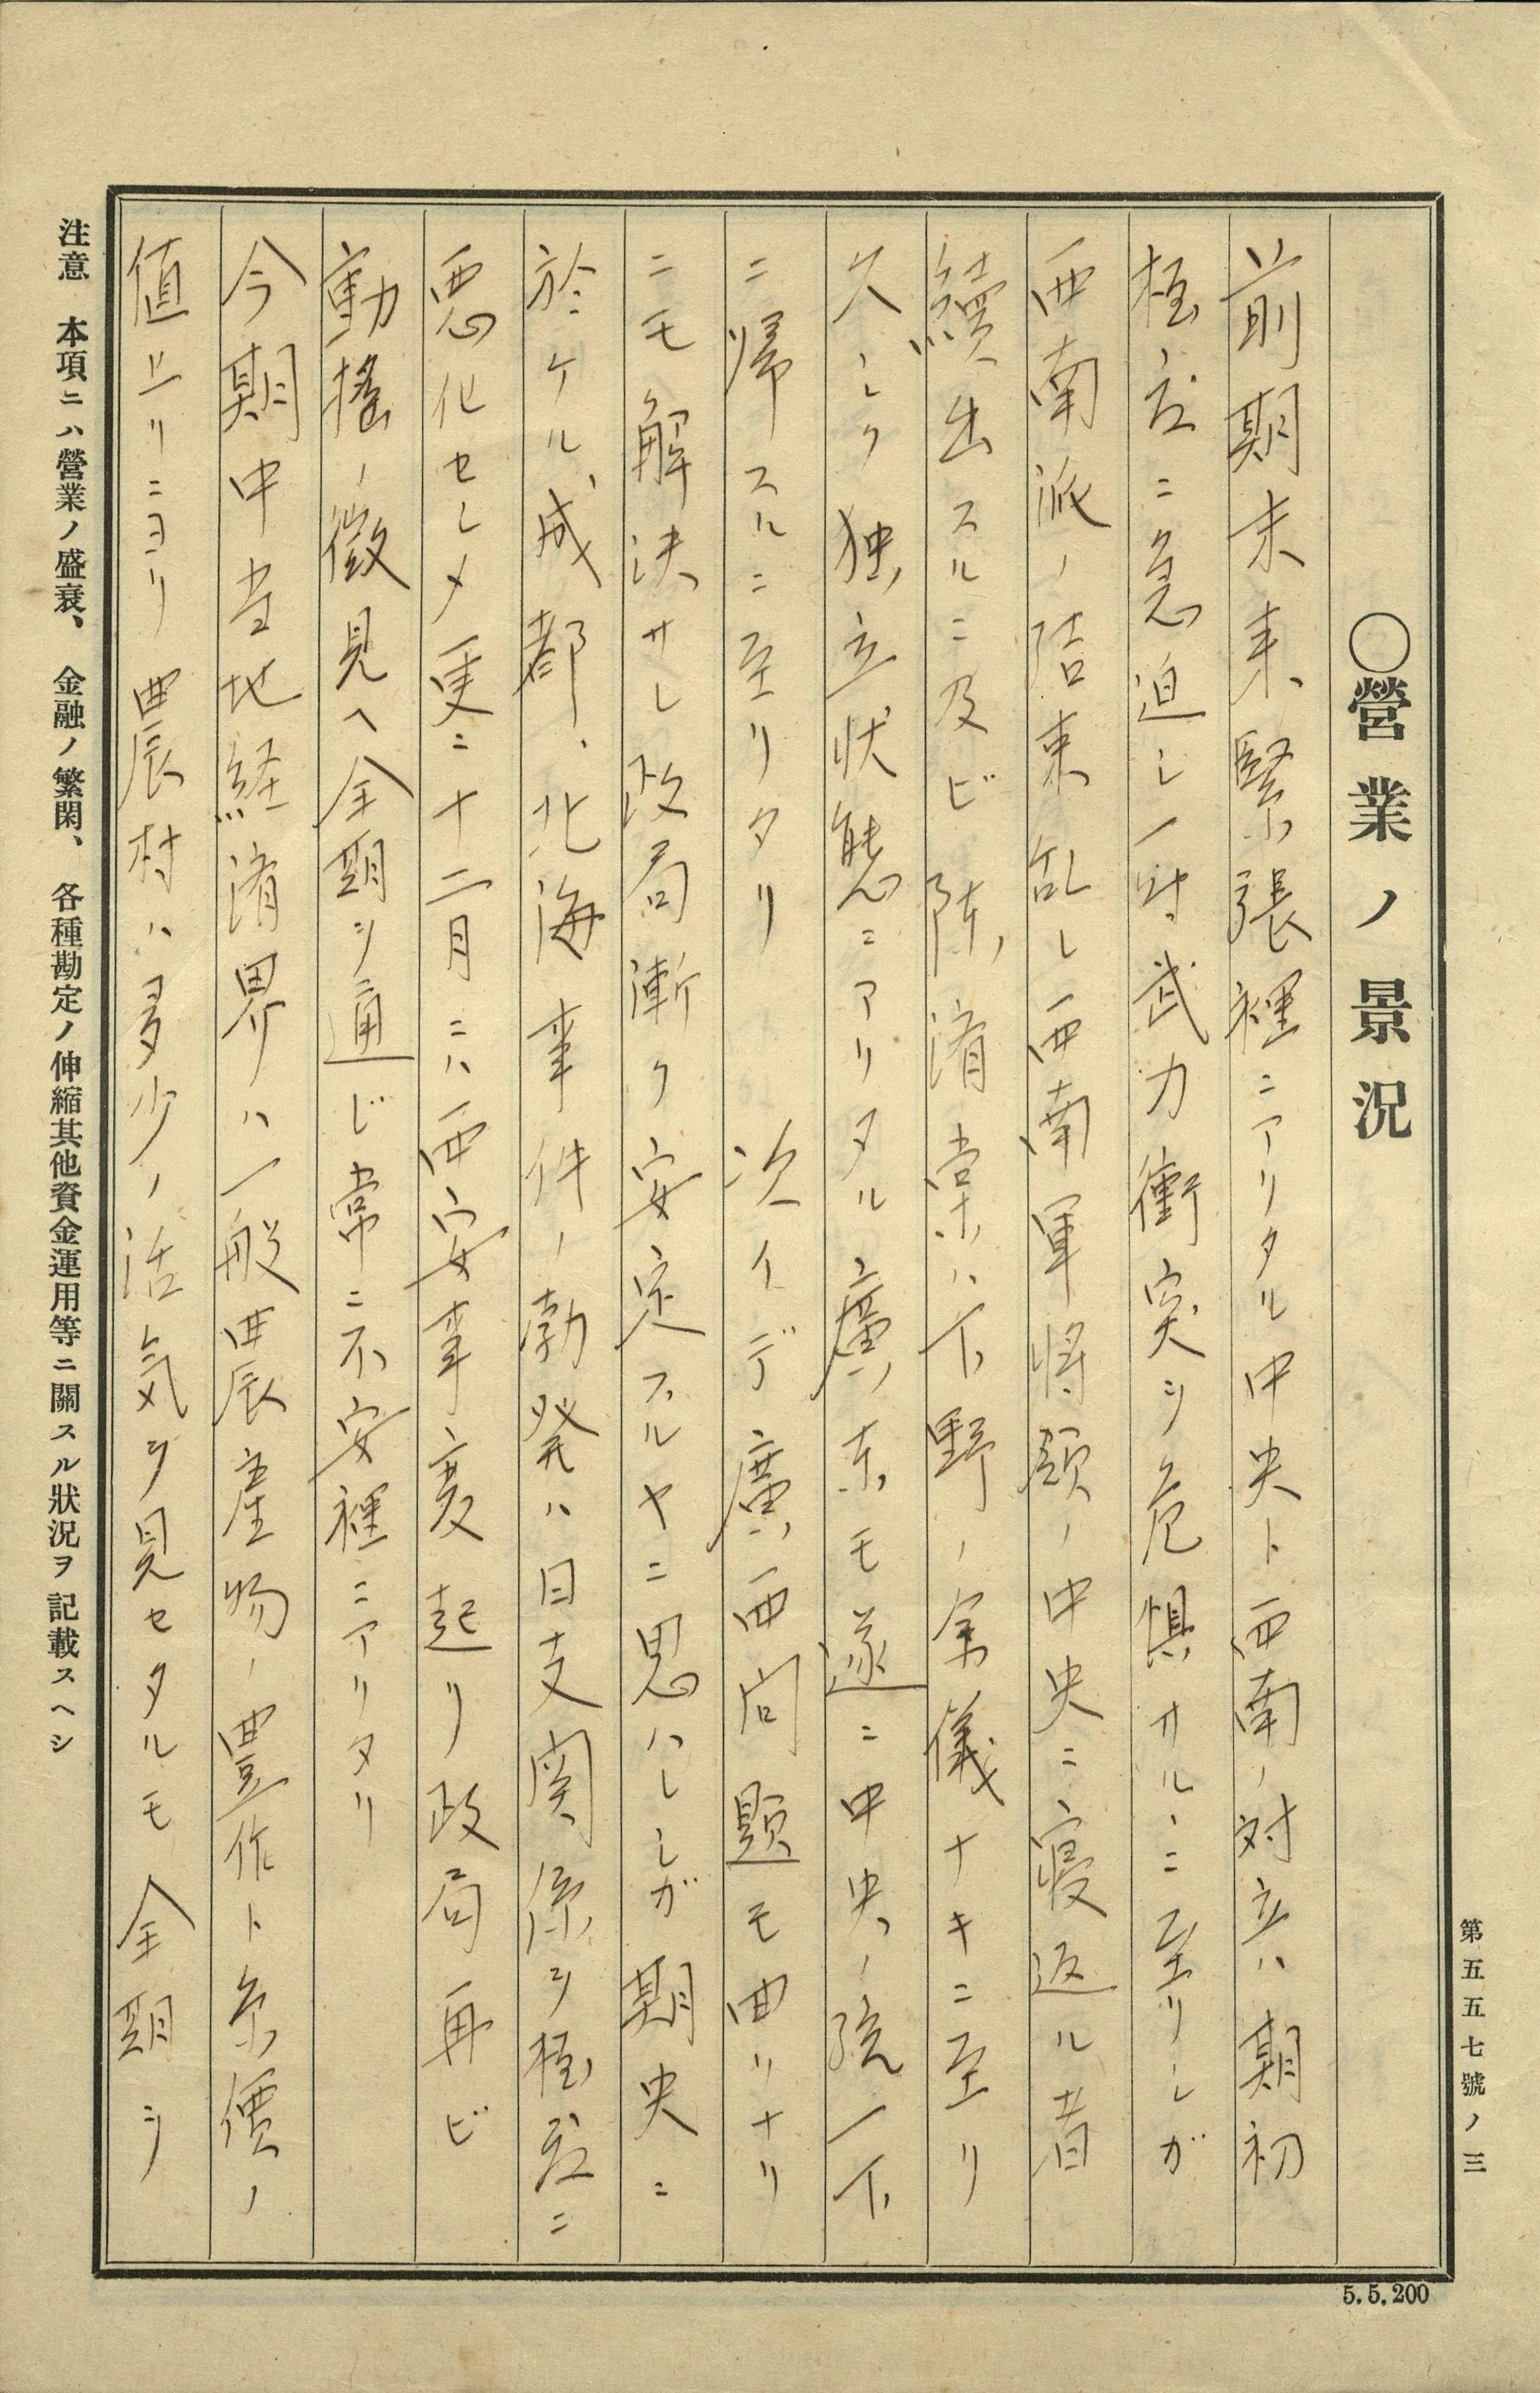 第五五七號ノ三
○營業ノ景況
前期末来緊張裡ニアリタル中央ト西南ノ対立ハ期初
極度ニ急迫シ一時武力衝突ヲ危惧サルヽニ至リシガ
西南派ノ結束乱レ西南軍将領ノ中央ニ寝返ル者
續出スルニ及ビ陳済棠ハ下野ノ余儀ナキニ至リ
久シク独立状態ニアリタル廣東モ遂ニ中央ノ統一下
ニ帰スルニ至リタリ 次イデ廣西問題モ曲リナリ
ニモ解決サレ政局漸ク安定スルヤニ思ハレシガ期央ニ
於ケル、成都、北海事件ノ勃発ハ日支関係ヲ極度ニ
悪化セシメ更ニ十二月ニハ西安事変起リ政局再ビ
動揺ノ徴見ヘ全期ヲ通じ常ニ不安裡ニアリタリ
今期中当地経済界ハ一般農産物ノ豊作ト糸價ノ
値上リニヨリ農村ハ多少ノ活気ヲ見セタルモ全期ヲ
注意 本項ニハ營業ノ盛衰、金融ノ繁閑、各種勘定ノ伸縮其他資金運用等ニ關スル狀況ヲ記載スヘシ
5.5.200